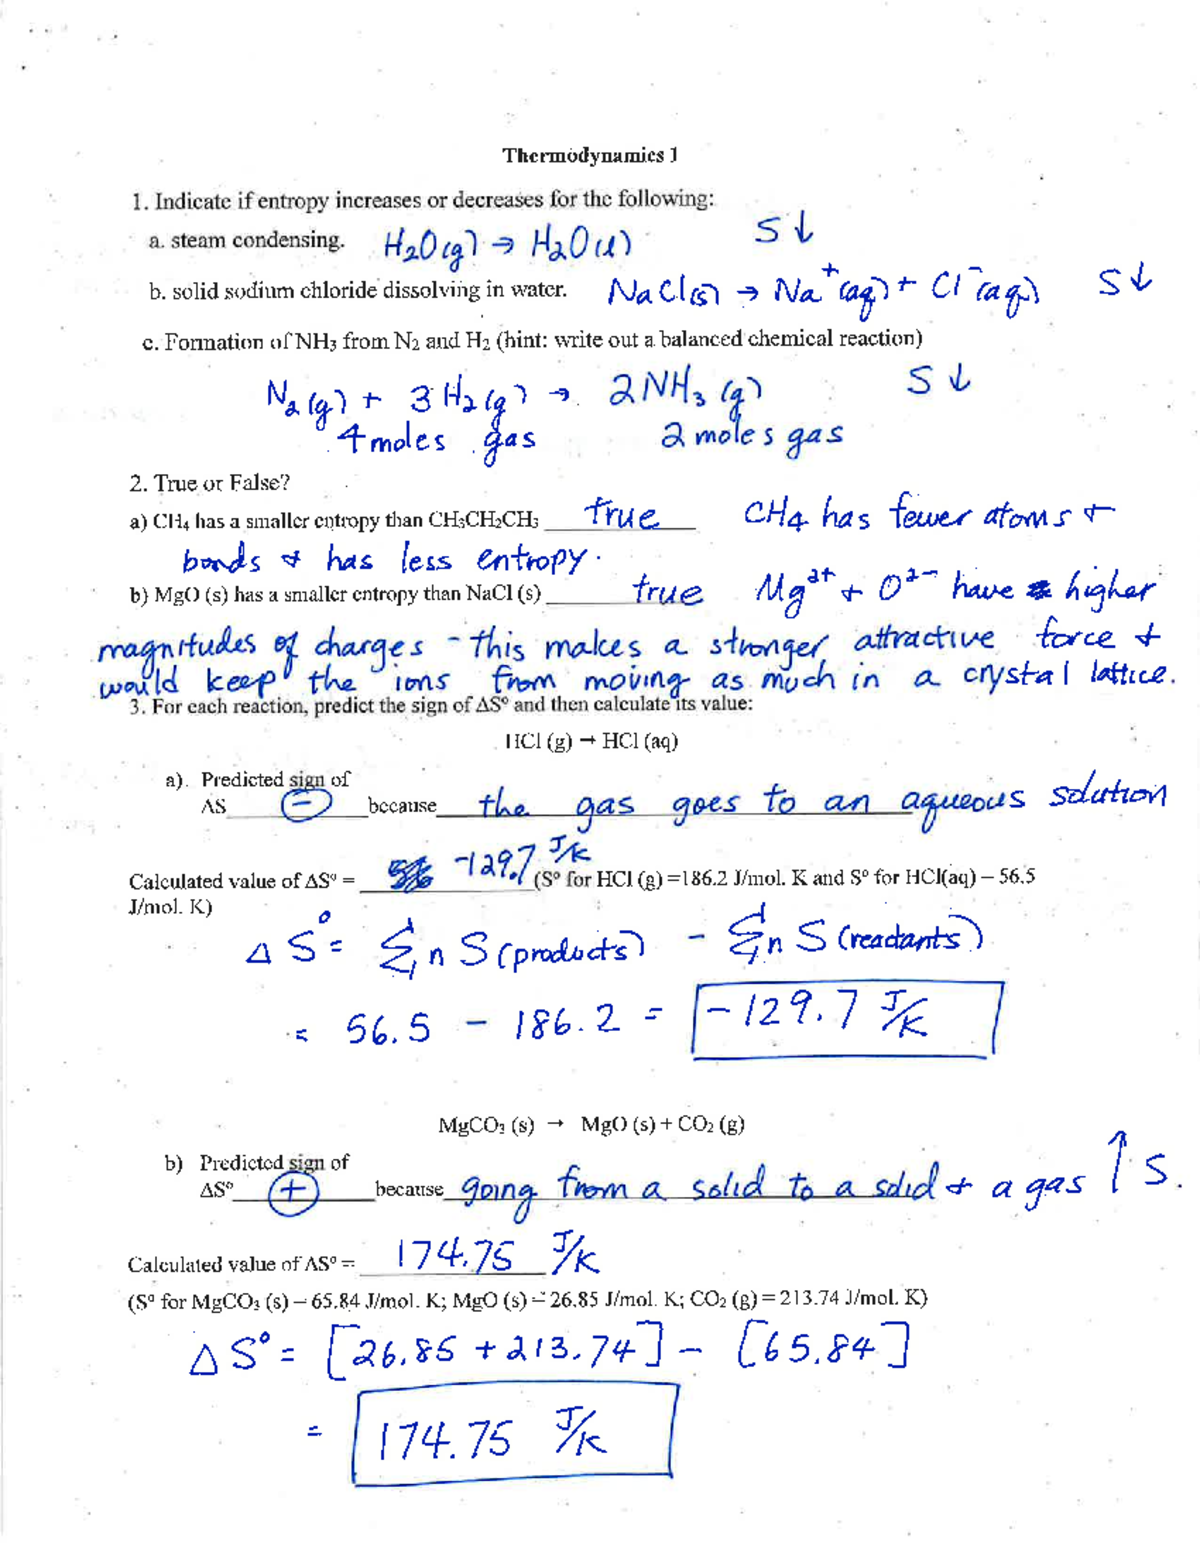 Thermodynamics 1
1. Indicate if entropy increases or decreases for the following:
a. steam condensing. H₂O(g) → H₂O(l) S↓
b. solid sodium chloride dissolving in water. NaCl(s) → Na⁺(aq) + Cl⁻(aq) S↓
c. Formation of NH₃ from N₂ and H₂ (hint: write out a balanced chemical reaction)
N₂(g) + 3H₂(g) → 2NH₃(g) S↓
4 moles gas 2 moles gas
2. True or False?
a) CH₄ has a smaller entropy than CH₃CH₂CH₃ true CH₄ has fewer atoms +
bonds + has less entropy.
b) MgO (s) has a smaller entropy than NaCl (s) true Mg²⁺ + O²⁻ have higher
magnitudes of charges - this makes a stronger attractive force +
would keep the ions from moving as much in a crystal lattice.
3. For each reaction, predict the sign of ΔS° and then calculate its value:
HCl (g) → HCl (aq)
a). Predicted sign of
ΔS (-) because the gas goes to an aqueous solution
Calculated value of ΔS° = -129.7 J/K (S° for HCl (g) =186.2 J/mol. K and S° for HCl(aq) – 56.5
J/mol. K)
ΔS° = Σ n S (products) - Σ n S (reactants)
= 56.5 - 186.2 = -129.7 J/K
MgCO₃ (s) → MgO (s) + CO₂ (g)
b) Predicted sign of
ΔS° (+) because going from a solid to a solid + a gas ↑S.
Calculated value of ΔS° = 174.75 J/K
(S° for MgCO₃ (s) – 65.84 J/mol. K; MgO (s) = 26.85 J/mol. K; CO₂ (g) = 213.74 J/mol. K)
ΔS° = [26.85 + 213.74] - [65.84]
= 174.75 J/K